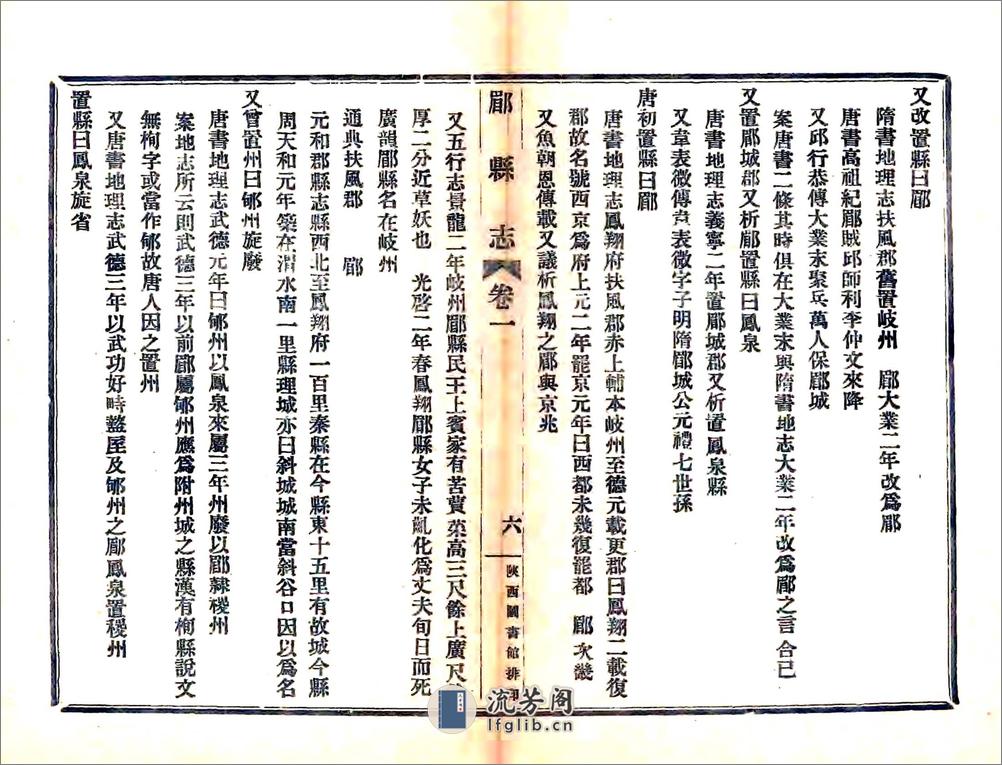 又改置縣曰郿
隋書地理志扶風郡舊置岐州　郿大業二年改爲郿
唐書高祖紀郿賊邱師利李仲文來降
又邱行恭傳大業末聚兵萬人保郿城
案唐書二條其時俱在大業末與隋書地志大業二年改爲郿之言合已
又置郿城郡又析郿置縣曰鳳泉
唐書地理志義寧二年置郿城郡又析置鳳泉縣
又韋表微傳韋表微字子明隋郿城公元禮七世孫
唐初置縣曰郿
唐書地理志鳳翔府扶風郡赤上輔本岐州至德元載更郡曰鳳翔二載復
郡故名號西京爲府上元二年罷京元年曰西都未幾復罷都　郿次畿
又魚朝恩傳載又議析鳳翔之郿與京兆
郿縣志
卷一
六
陝西圖書館排印
又五行志景龍二年岐州郿縣民王上賓家有苦蕒菜高三尺餘上廣尺
厚二分近草妖也　光啓二年春鳳翔郿縣女子未齔化爲丈夫旬日而死
廣韻郿縣名在岐州
通典扶風郡　郿
元和郡縣志縣西北至鳳翔府一百里秦縣在今縣東十五里有故城今縣
周天和元年築在渭水南一里縣理城亦曰斜城城南當斜谷口因以爲名
又曾置州曰郇州旋廢
唐書地理志武德元年曰郇州以鳳泉來屬三年州廢以郿隸稷州
案地志所云則武德三年以前郿屬郇州應爲附州城之縣漢有栒縣說文
無栒字或當作郇故唐人因之置州
又唐書地理志武德三年以武功好畤盩厔及郇州之郿鳳泉置稷州
置縣曰鳳泉旋省
流芳阁
lfglib.cn